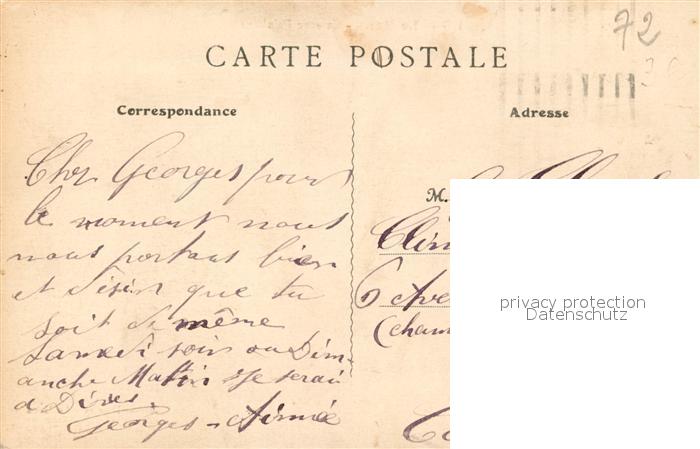 72
CARTE POSTALE
Correspondance
Adresse
Cher Georges pour
le moment nous
nous portons bien
et désire que tu
soit de même
Samedi soir ou Dim
anche Matin Je serai
a Dives.
Georges - Aimée
M.
6 Ave
(cham
privacy protection
Datenschutz